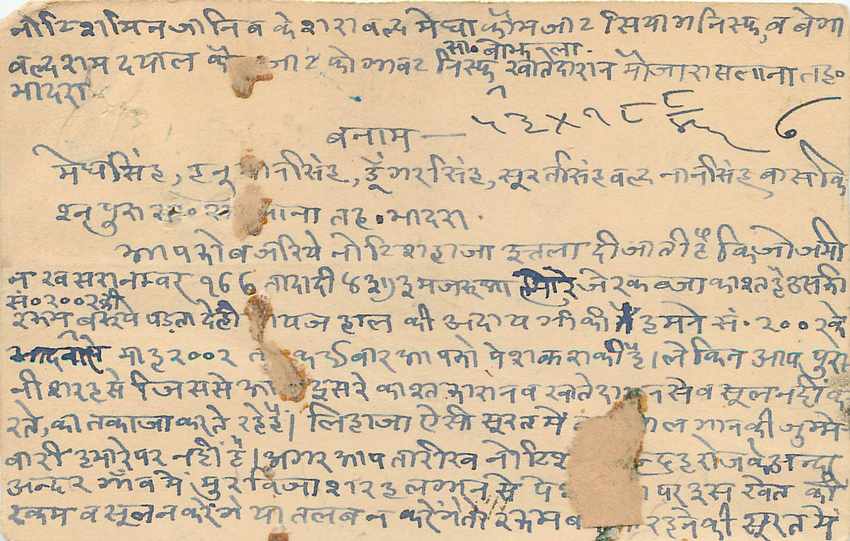 नोटिश मिन जानिब केशरा वल्द मेघा कौम जाट सियाग निस्फ, व बेगा
सा० बोझला.
वल्द राम दयाल कौ जाट को गावट निस्फ खातेदारान मौजा रासलाना तह०
भादरा
बनाम —
मेघसिंह, हनु मानसिंह, डूँगरसिंह, सूरतसिंह वल्द नानसिंह वासी कि
शन पुरा लाना तह. भादरा.
आपको बजरिये नोटिश हाजा इतला दी जाती है कि जो जमी
न खसरा नम्बर १६६ तादादी मजरूआ हमारे जेर कबजा काश्त है उसकी
सं० २००२ की
रकम बस्सेपे पड़ता देही यज हाल की अदायगी की हमने सं. २००२ के
माह २००२ त कई बार आपको पेशकश की है। लेकिन आप पुरा
नी शरह से जिससे आ दूसरे काश्तकारान व खातेदा न से वसूल नहीं क
रते, का तकाजा करते रहे हैं। लिहाजा ऐसी सूरत में लगान की जुम्मे
वारी हमारे पर नहीं है। अगर आप तारीख नोटिश न्द्रह रोज के अन्द
अन्दर गाँव में मुरविजा शरह लगान से पे पर इस खेत की
रकम वसूल न करेंगे या तलब न करेंगे तो रकम ब रहने की सूरत में